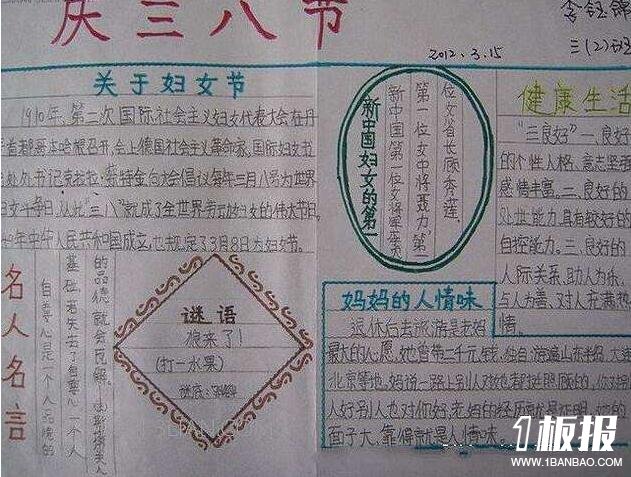 庆三八节
李钰锦
三(2)班
2012.3.15
关于妇女节
1910年,第二次国际社会主义妇女代表大会在丹
首都哥本哈根召开,会上德国社会主义革命家、国际妇女
书记克拉拉·蔡特金向大会倡议每年三月八号为世界
妇女斗争日,从此"三八"就成了全世界劳动妇女的伟大节日。
年中华人民共和国成立,也规定了3月8日为妇女节。
新中国妇女的第一
新中国第一位女将军
第一位女中将聂力,第一
位女省长顾秀莲。
健康生活
"三良好"一良好
的个性人格、意志坚
感情丰富。二、良好的
处世能力具有较好的
自控能力。三、良好的
人际关系,助人为乐,
与人为善,对人充满热
情。
名人名言
自尊心是一个人品德的
基础,若失去了自尊心,一个人
的品德就会瓦解。
谜语
狼来了!
(打一水果)
谜底:
妈妈的人情味
退休后去旅游是老妈
最大的心愿。她曾带二千元钱,独自
北京等地。妈说一路上别人对她都挺照顾的,你对别
人好别人也对你好。老妈的经历就是证明
面子大,靠得就是人情味。
1板报
WWW.1BANBAO.COM